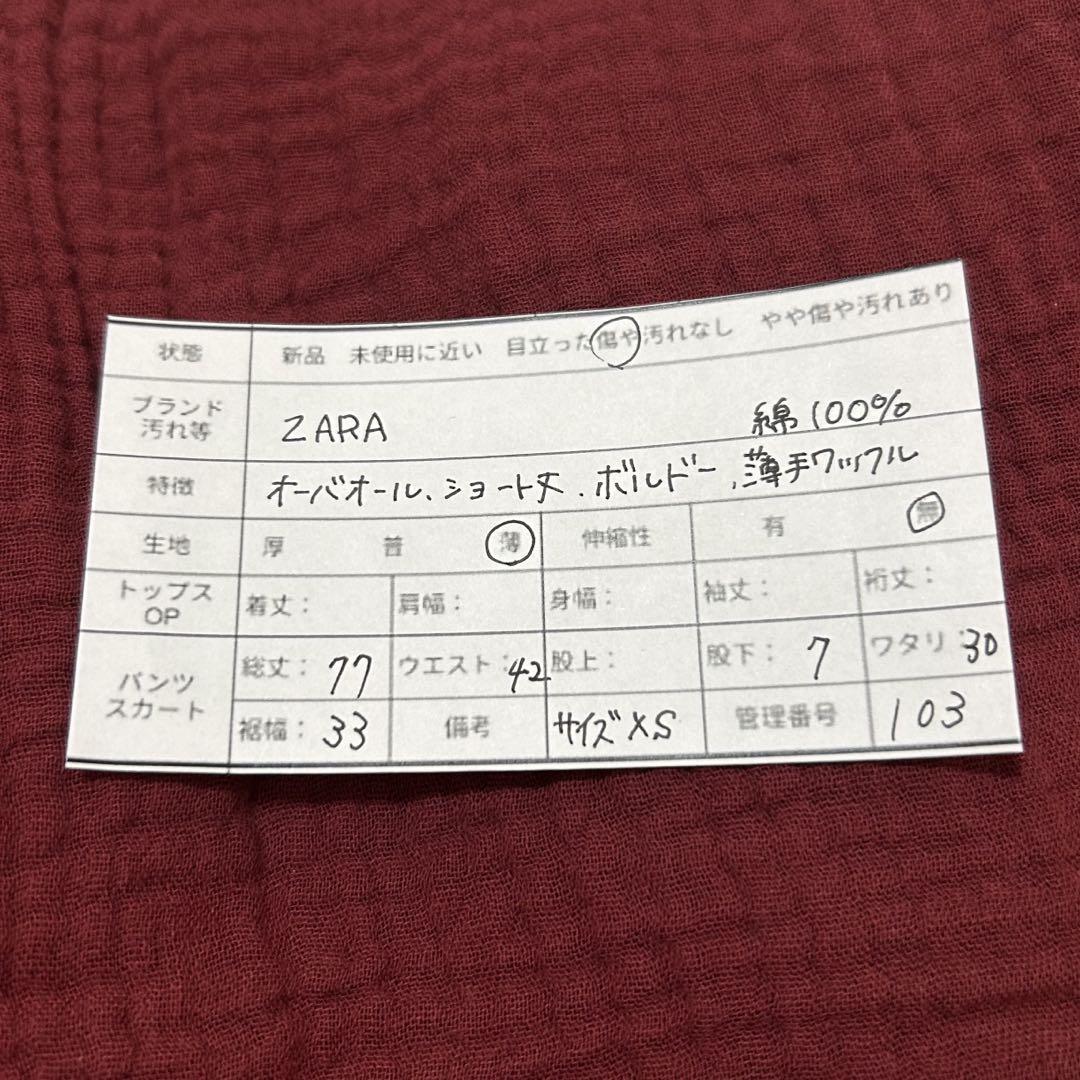 状態 新品 未使用に近い 目立った傷や汚れなし やや傷や汚れあり
ブランド
汚れ等 ZARA 綿100%
特徴 オーバオール、ショート丈、ボルドー、薄手ワッフル
生地 厚 普 薄 伸縮性 有 無
トップス
OP 着丈: 肩幅: 身幅: 袖丈: 裄丈:
パンツ
スカート 総丈: 77 ウエスト: 42 股上: 股下: 7 ワタリ: 30
裾幅: 33 備考 サイズXS 管理番号 103